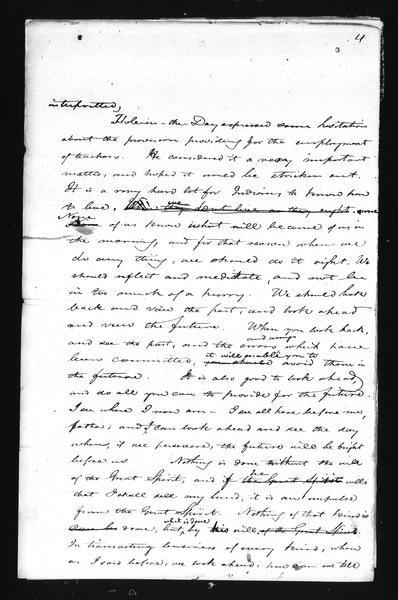 4
interpretted,
Hole-in-the-Day expressed some hesitation
about the provision providing for the employment
of teachers. He considered it a very important
matter, and hoped it would be stricken out.
It is a very hard lot for Indians, to know how
to live, we dont live as they ought,
None of us know what will be come of us in
the morning, and for that reason when we
do any thing, we should do it right. We
should reflect and meditate, and not be
in too much of a hurry. We should look
back and view the past, and look ahead
and view the future. When you look back,
and wrongs
and see the past, and the errors which have
been committed, it will enable you to
you should avoid them in
the future. It is also good to look ahead,
and do all you can to provide for the future.
I see where I now am - I see all here before me,
father; and I can look ahead and see the day
when, if we persevere, the future will be bright
before us. Nothing is done without the will
of the Great Spirit, and if the Great Spirit wills
that I shall sell my land, it is an impulse
from the Great Spirit. Nothing of that kind is
can be done, but it is done by his will, of the Great Spirit.
In transacting business of every kind, when
as I said before, we look ahead, how can we tell